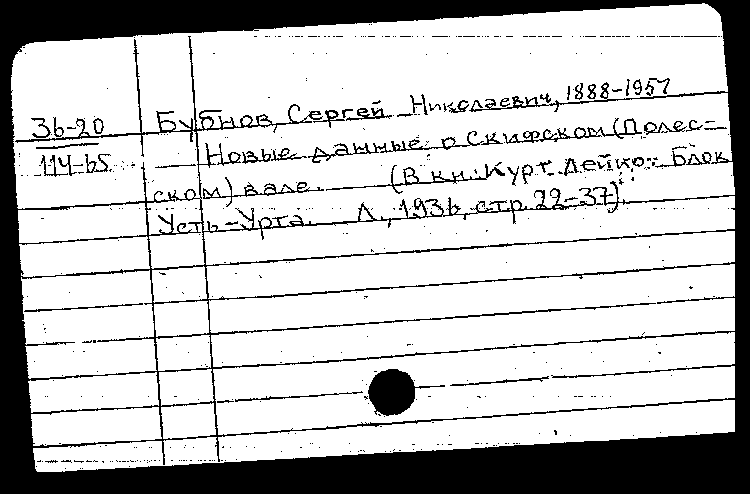 36-20
114-65
Бубнов, Сергей Николаевич, 1888-1957
Новые данные о Скифском (Полес-
ском) вале. (В кн.: Курт Лейко: Блок
Усть-Урта. Л., 1936, стр. 22-37).